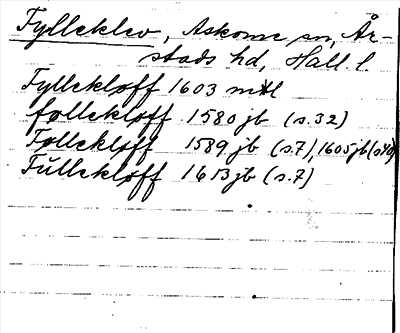 Fylleklev, Askome sn, År-
stads hd, Hall. l.
Fyllekloff 1603 mtl
følleklöff 1580 jb (s. 32)
Føllekloff 1589 jb (s. 7), 1605 jb
Fülleklöff 1613 jb (s. 7)